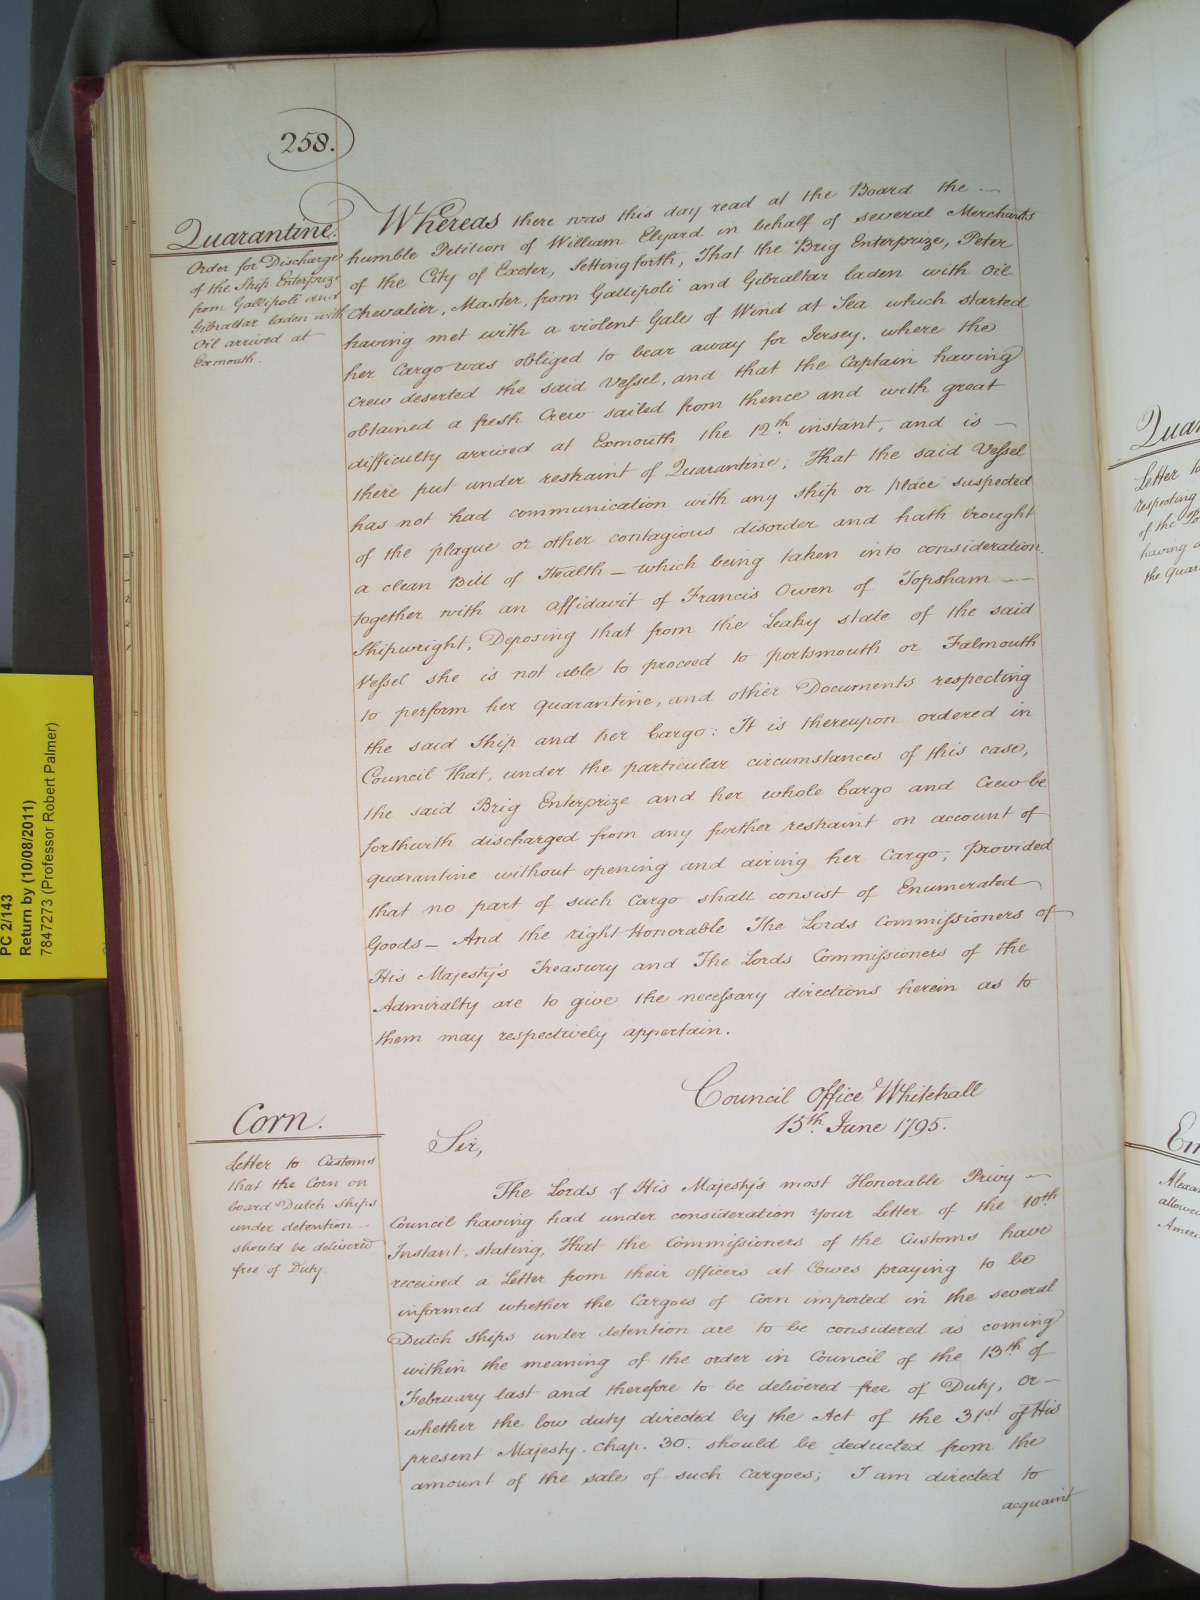 258.
Quarantine.
Order for Discharge
of the Ship Enterprize
from Gallipoli and
Gibraltar laden with
Oil arrived at
Exmouth.
Whereas there was this day read at the Board the
humble Petition of William Elyard in behalf of several Merchants
of the City of Exeter, Setting forth, That the Brig Enterprize, Peter
Chevalier, Master, from Gallipoli and Gibraltar laden with Oil
having met with a violent Gale of Wind at Sea which started
her Cargo was obliged to bear away for Jersey, where the
Crew deserted the said Vessel, and that the Captain having
obtained a fresh Crew sailed from thence and with great
difficulty arrived at Exmouth the 12th instant, and is
there put under restraint of Quarantine; That the said Vessel
has not had communication with any ship or place suspected
of the plague or other contagious disorder and hath brought
a clean Bill of Health — which being taken into consideration
together with an Affidavit of Francis Owen of Topsham
Shipwright, Deposing that from the Leaky state of the said
Vessel she is not able to proceed to portsmouth or Falmouth
to perform her quarantine, and other Documents respecting
the said Ship and her Cargo: It is thereupon ordered in
Council that, under the particular circumstances of this case,
the said Brig Enterprize and her whole Cargo and Crew be
forthwith discharged from any further restraint on account of
quarantine without opening and airing her Cargo; provided
that no part of such Cargo shall consist of Enumerated
Goods — And the right Honorable The Lords Commissioners of
His Majesty's Treasury and The Lords Commissioners of the
Admiralty are to give the necessary directions herein as to
them may respectively appertain.
Council Office Whitehall
15th June 1795.
Corn.
Letter to Customs
that the Corn on
board Dutch Ships
under detention
should be delivered
free of Duty.
Sir,
The Lords of His Majesty's most Honorable Privy
Council having had under consideration your Letter of the 10th
Instant, stating, That the Commissioners of the Customs have
received a Letter from their officers at Cowes praying to be
informed whether the Cargoes of Corn imported in the several
Dutch Ships under detention are to be considered as coming
within the meaning of the order in Council of the 13th of
February last and therefore to be delivered free of Duty, or
whether the low duty directed by the Act of the 31st of His
present Majesty. Chap. 30. should be deducted from the
amount of the sale of such Cargoes; I am directed to
acquaint
PC 2/143
Return by (10/08/2011)
7847273 (Professor Robert Palmer)
Letter to
respecting
of the
having
the Quar
allowed